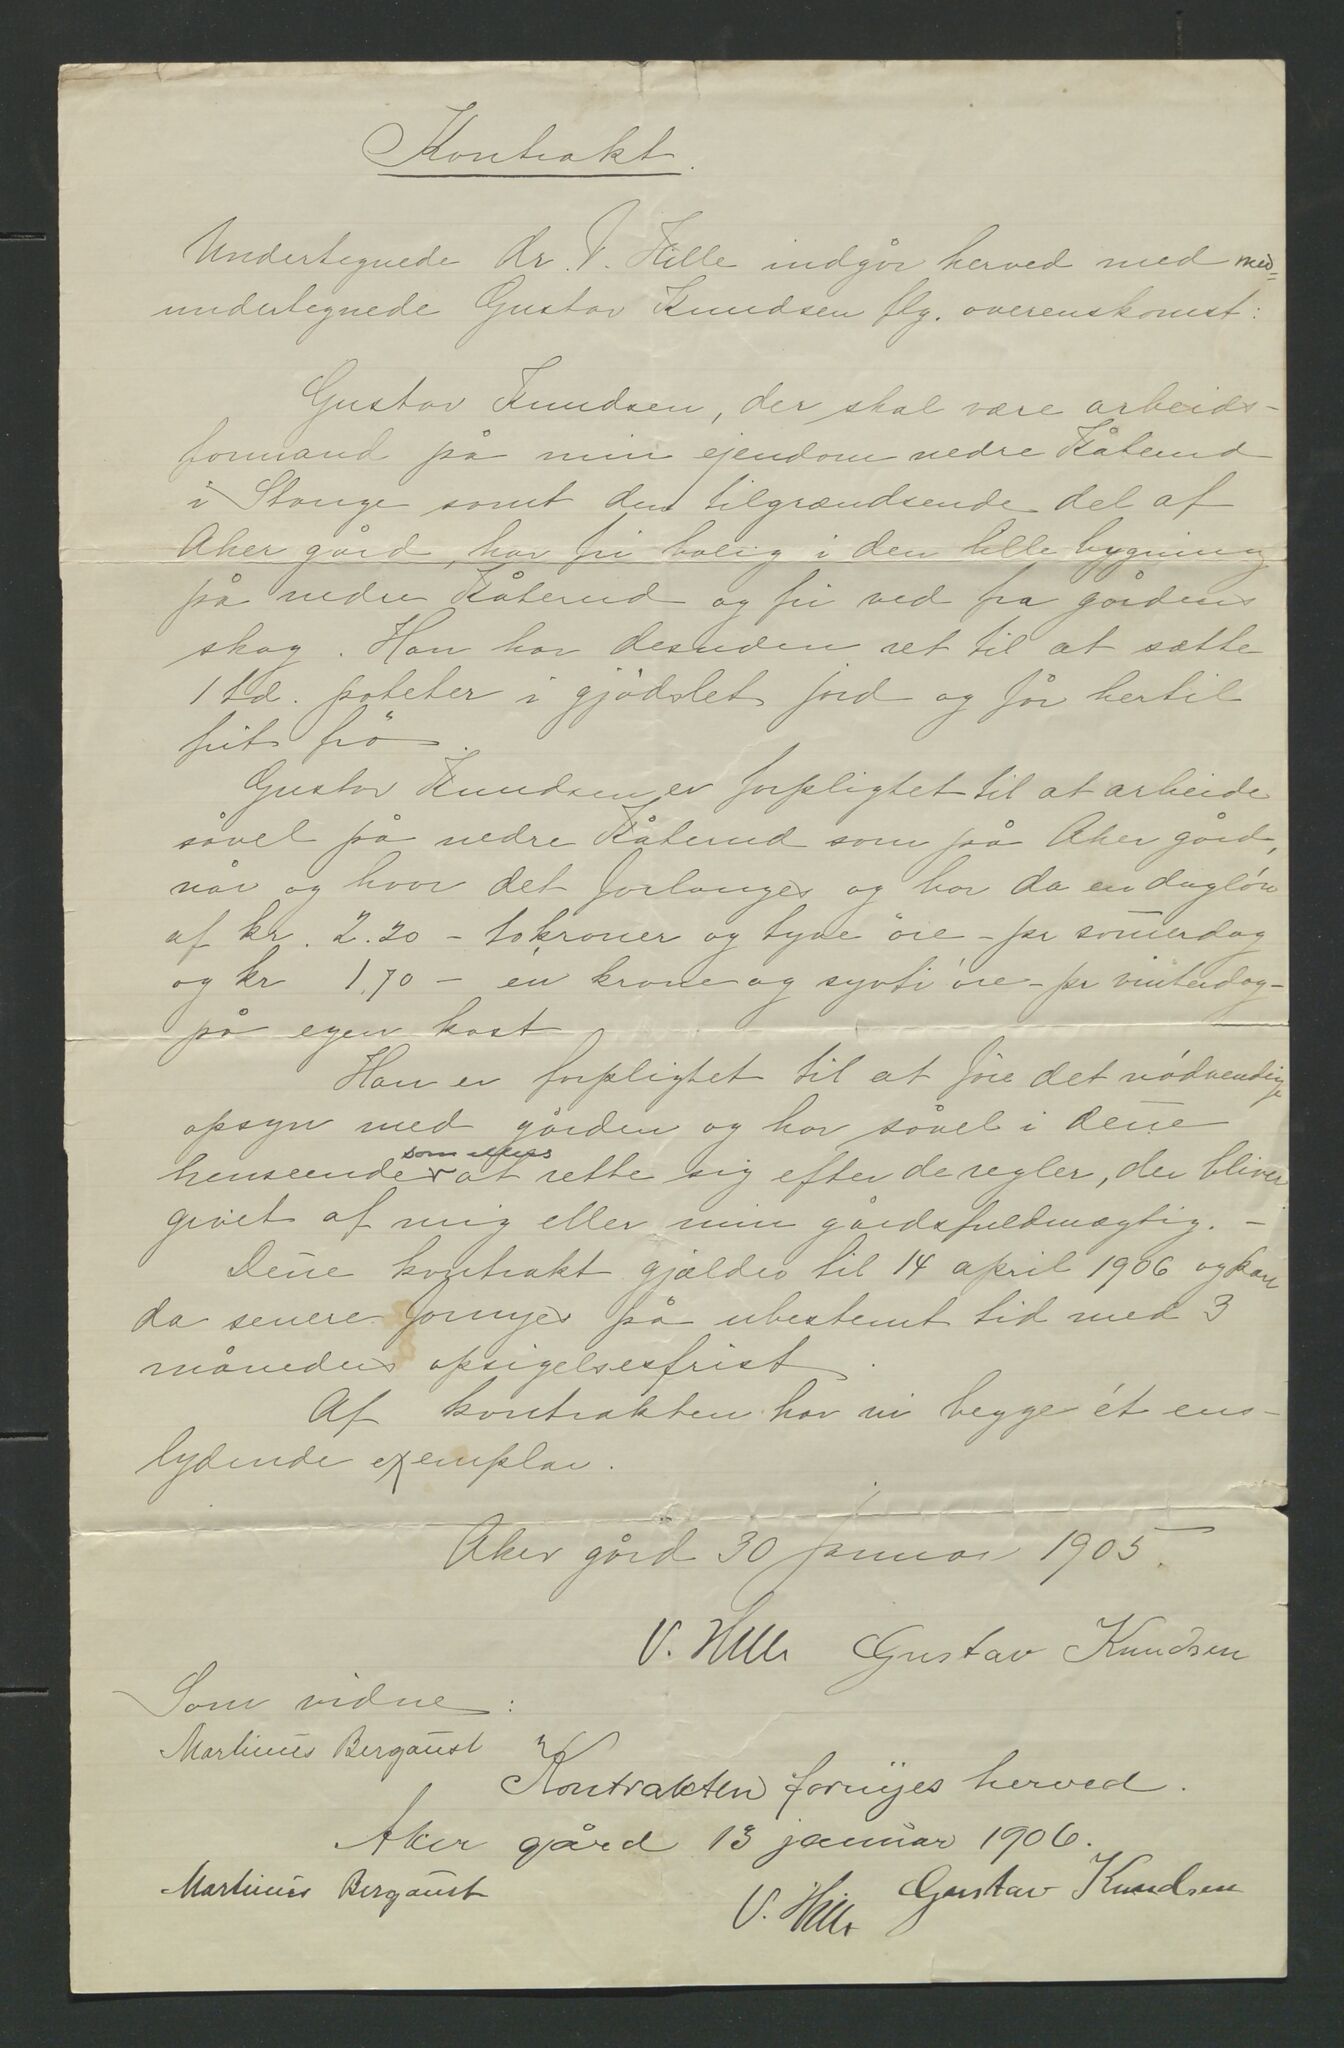 Kontrakt.
Undertegnede dr. V. Hille indgår herved med med=
undertegnede Gustav Knudsen flg. overenskomst:
Gustav Knudsen, der skal være arbeids-
formand på min ejendom nedre Kåterud
i Stange samt den tilgrændsende del af
Aker gård, har fri bolig i den lille bygning
på nedre Kåterud og fri ved fra gårdens
skog. Han har desuden ret til at sætte
1 td. poteter i gjödslet jord og får hertil
frit frö.
Gustav Knudsen er forpligtet til at arbeide
såvel på nedre Kåterud som på Aker gård,
når og hvor det forlanges og har da en daglön
af kr. 2.20 - to kroner og tyve öre - pr som̄erdag
og kr 1,70 - én krone og sytti öre - pr vinterdag -
på egen kost
Han er forpligtet til at före det nödvendige
opsyn med gården og har såvel i den̄e
henseende som ellers at rette sig efter de regler, der bliver
givet af mig eller min gårdsfuldmægtig. -
Den̄e kontrakt gjælder til 14 april 1906 og kan
da senere fornyes på ubestemt tid med 3
måneders opsigelsesfrist.
Af kontrakten har vi begge ét ens-
lydende exemplar.
Aker gård 30 januar 1905.
V. Hille Gustav Knudsen
Som vidne:
Martinus Bergaust
Kontrakten fornyes herved.
Aker gård 13 januar 1906.
Martinus Bergaust
V. Hille Gustav Knudsen